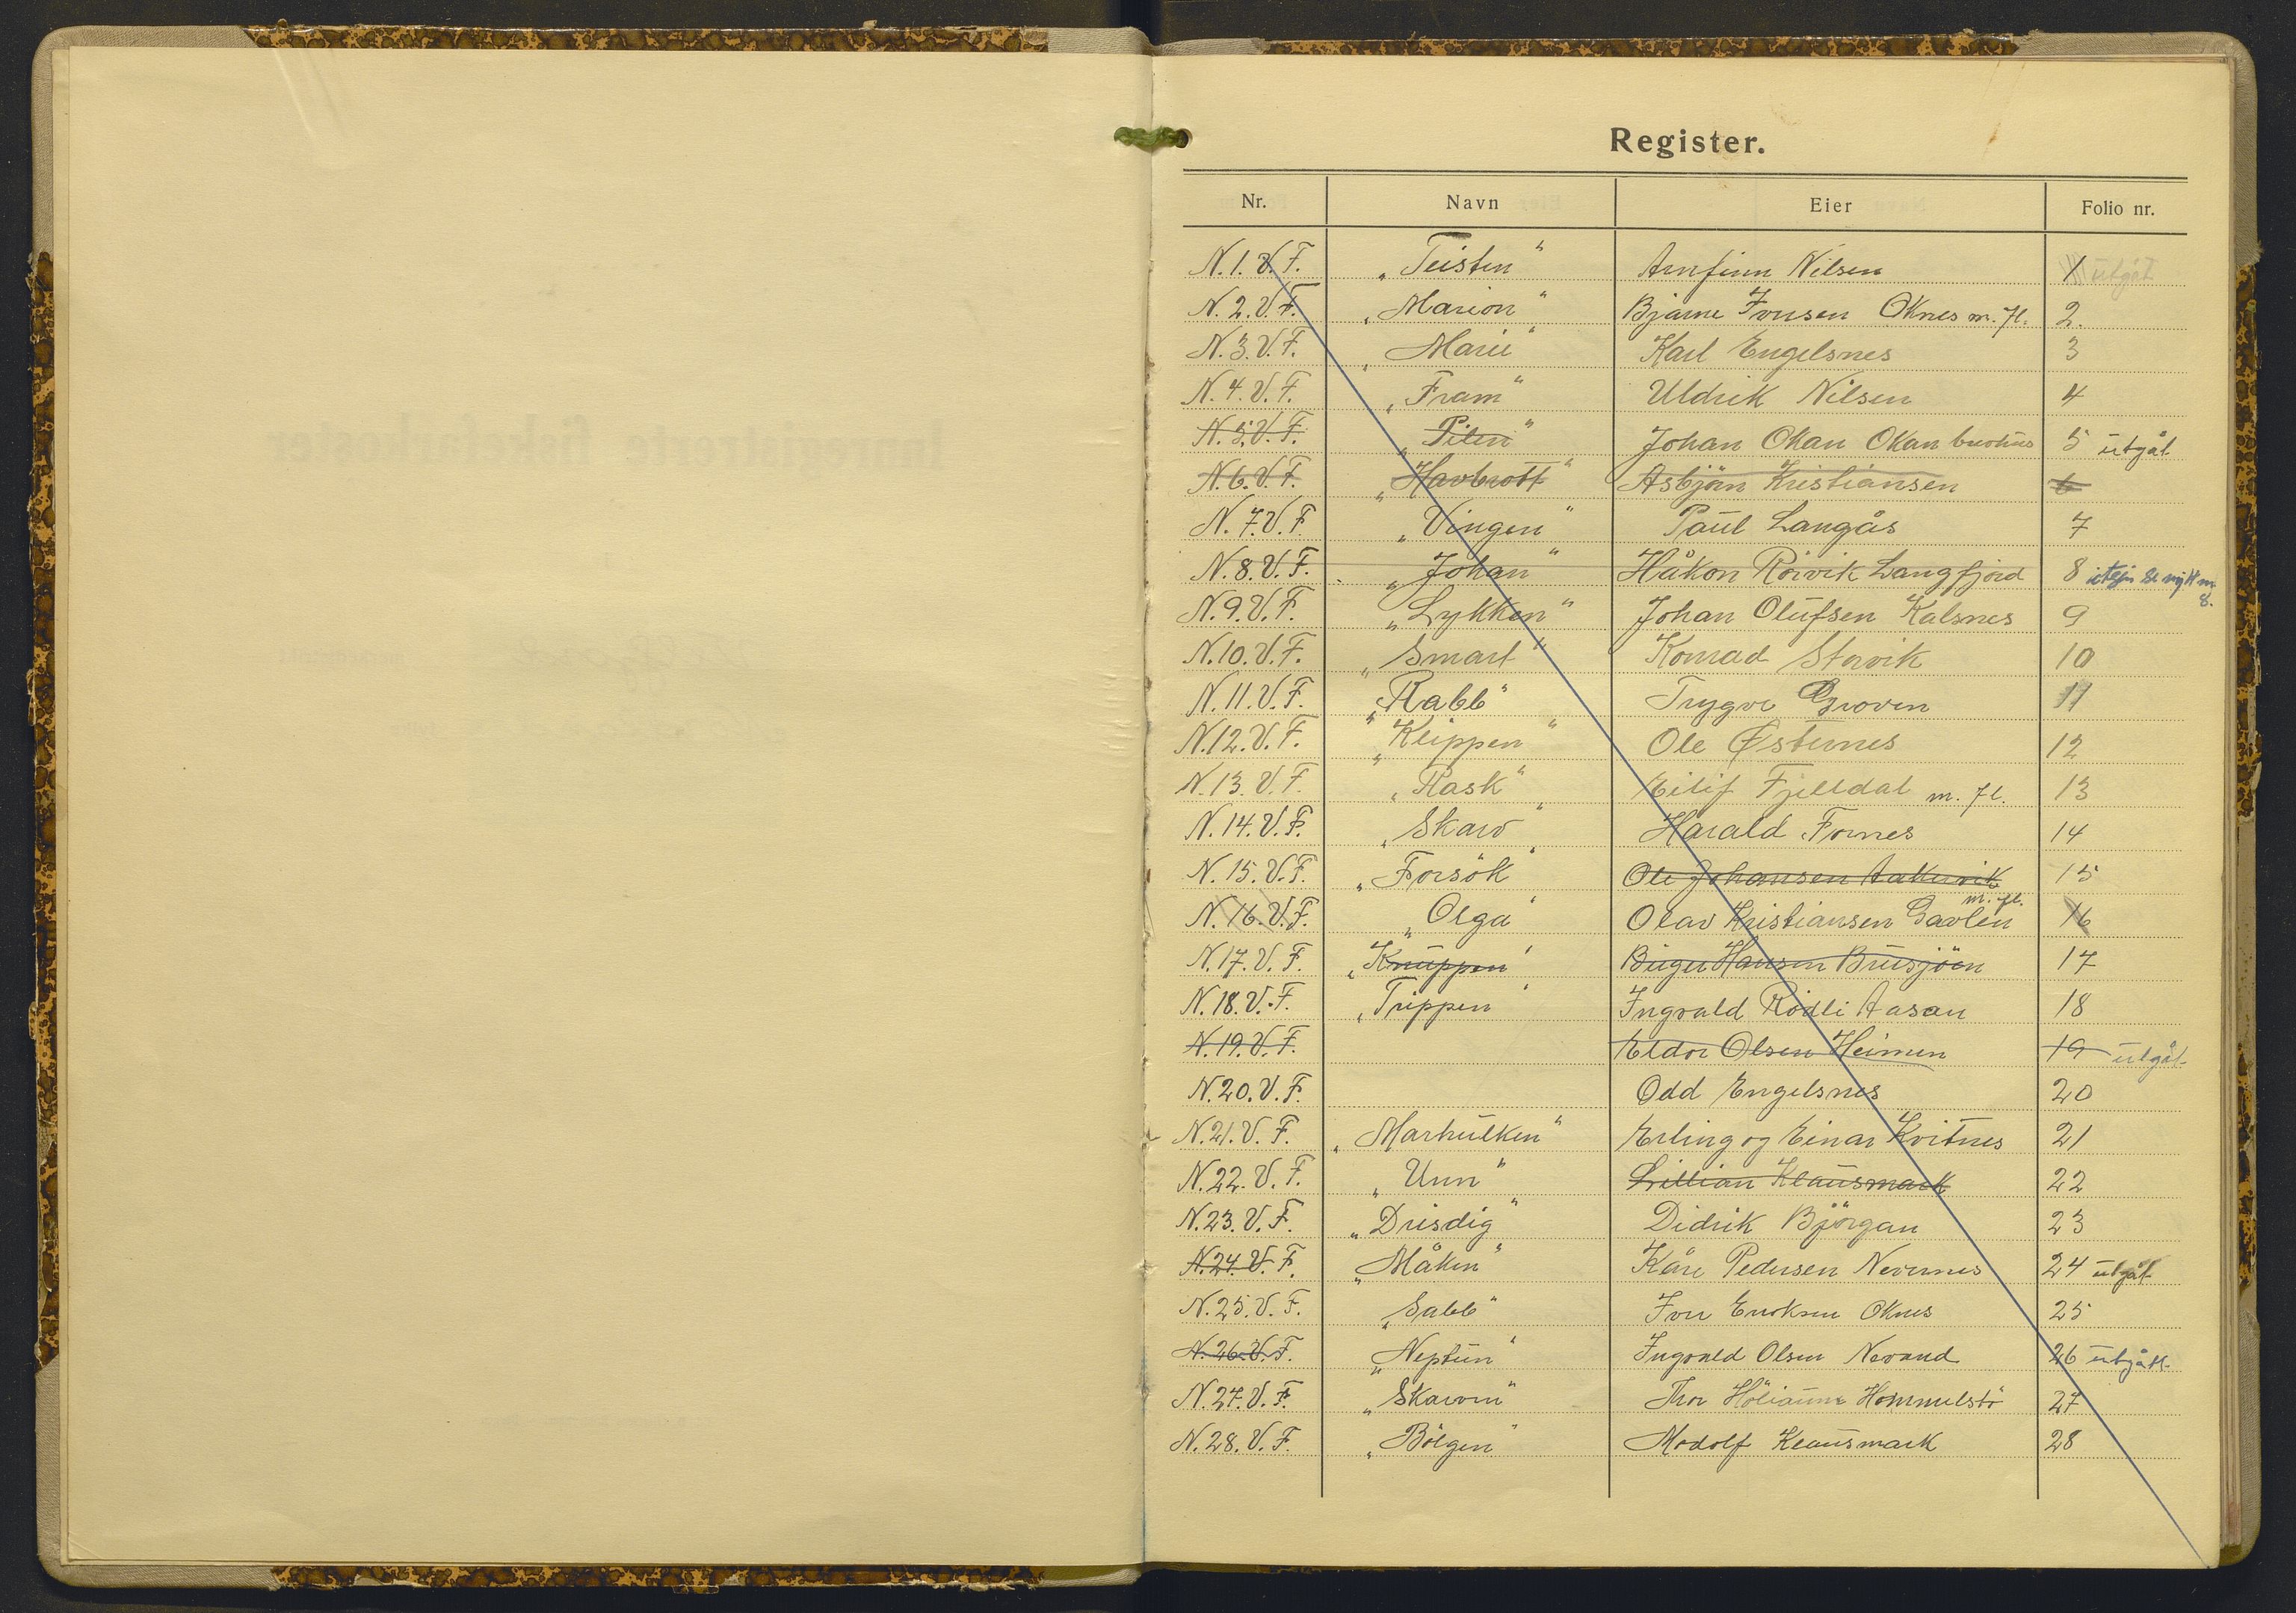 Register.
Nr. Navn Eier Folio nr.
N. 1. V. F. „Teisten“ Arnfinn Nilsen 1 utgåt
N. 2. V. F. „Marion“ Bjarne Iversen Oknes m. fl. 2.
N. 3. V. F. „Marie“ Karl Engelsnes 3
N. 4. V. F. „Fram“ Uldrik Nilsen 4
N. 5. V. F. „Pilen“ Johan Okan Okan 5 utgåt
N. 6. V. F. „Havbrott“ Asbjörn Kristiansen 6
N. 7. V. F. „Vingen“ Paul Langås 7
N. 8. V. F. „Johan“ Håkon Rörvik Langfjord 8 se nytt nr. 8.
N. 9. V. F. „Lykken“ Johan Olufsen Kalsnes 9
N. 10. V. F. „Smart“ Konrad Storvik 10
N. 11. V. F. „Rabb“ Trygve Groven 11
N. 12. V. F. „Kleppen“ Ole Østernes 12
N. 13. V. F. „Rask“ Eilif Fjelldal m. fl. 13
N. 14. V. F. „Skarv“ Harald Fornes 14
N. 15. V. F. „Forsök“ Ole Johansen Aakervik 15
N. 16. V. F. „Olga“ Olav Kristiansen Gavlen m. fl. 16
N. 17. V. F. „Knuppen“ Birger Hansen Brusjöen 17
N. 18. V. F. „Trippen“ Ingvald Rödli Aasan 18
N. 19. V. F. Eldor Olsen Heimen 19 utgåt
N. 20. V. F. Odd Engelsnes 20
N. 21. V. F. „Marhulken“ Erling og Einar Kvitnes 21
N. 22. V. F. „Unn“ Lillian Klausmark 22
N. 23. V. F. „Drisdig“ Didrik Björgan 23
N. 24. V. F. „Måken“ Kåre Pedersen Nevernes 24 utgåt
N. 25. V. F. „Sabb“ Iver Eriksen Oknes 25
N. 26. V. F. „Neptun“ Ingvald Olsen Nevand 26 utgått
N. 27. V. F. „Skarven“ Thor Hommelstö 27
N. 28. V. F. „Bölgen“ Modolf Klausmark 28